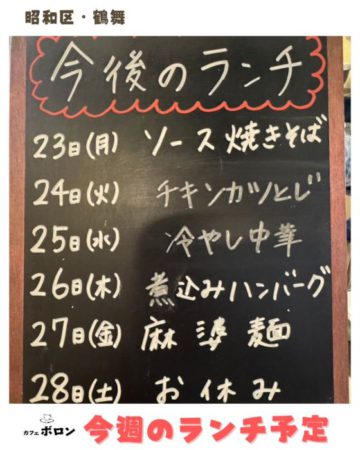 昭和区・鶴舞
今後のランチ
23日(月) ソース焼きそば
24日(火) チキンカツとじ
25日(水) 冷やし中華
26日(木) 煮込みハンバーグ
27日(金) 麻婆麺
28日(土) お休み
カフェ ボロン 今週のランチ予定